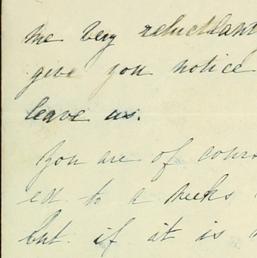 me very reluctant
give you notice
leave us.
You are of cours
ed to a weeks
but if it is